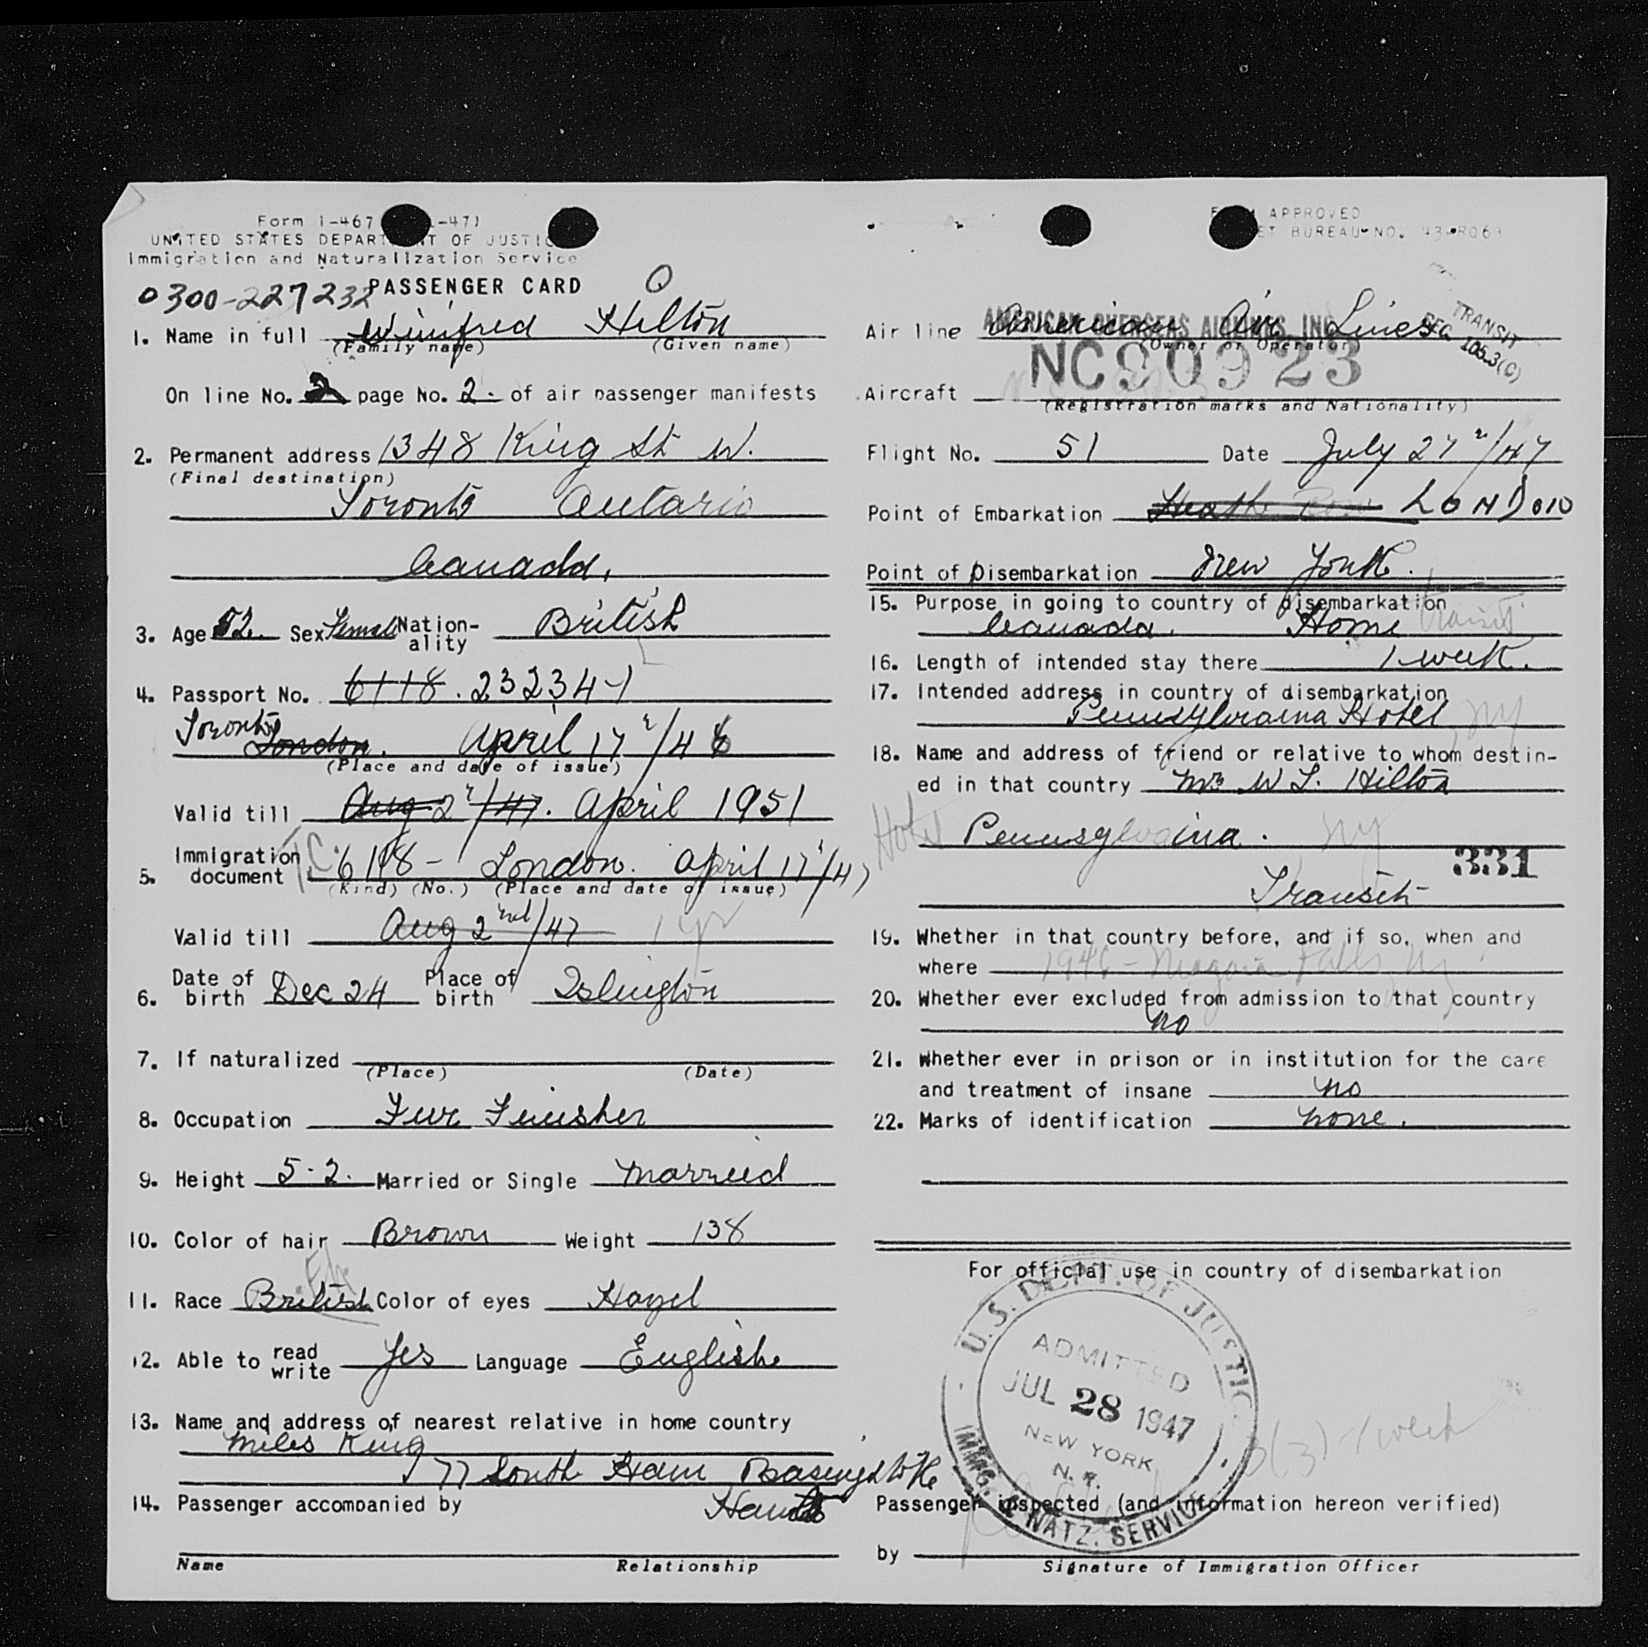 Form I-467 -47)
UNITED STATES DEPARTMENT OF JUSTICE
Immigration and Naturalization Service
0300-227232 PASSENGER CARD
1. Name in full Winifred Hilton
(Family name) (Given name)
On line No. 2 page No. 2. of air passenger manifests
2. Permanent address 1348 King St W.
(Final destination)
Toronto Ontario
Canada.
3. Age 52. Sex Female Nationality British
4. Passport No. 6118. 23234-1
Toronto London. April 17/46
(Place and date of issue)
Valid till Aug 2/47. April 1951
5. Immigration document 6118- London. April 17/47
(Kind) (No.) (Place and date of issue)
Valid till Aug 2nd/47 1 yr
6. Date of birth Dec 24 Place of birth Islington
7. If naturalized
(Place) (Date)
8. Occupation Fur Finisher
9. Height 5-2. Married or Single Married
10. Color of hair Brown Weight 138
11. Race British Color of eyes Hazel
12. Able to read write Yes Language English
13. Name and address of nearest relative in home country
Miles King
77 South Ham Basingstoke
Hants
14. Passenger accompanied by
Name Relationship
APPROVED
BUREAU NO. 43-R069
Air line American Air Lines
AMERICAN OVERSEAS AIRLINES, INC
(Owner or Operator)
TRANSIT
SEC. 105.3(C)
NC90923
Aircraft
(Registration marks and Nationality)
Flight No. 51 Date July 27/47
Point of Embarkation Heath Row LONDON
Point of Disembarkation New York.
15. Purpose in going to country of disembarkation
Canada. Home Transit
16. Length of intended stay there 1-week.
17. Intended address in country of disembarkation
Pennsylvania Hotel NY
18. Name and address of friend or relative to whom destined in that country Mr W L. Hilton
Hotel Pennsylvania. NY
331
Transit
19. Whether in that country before, and if so, when and
where 1946 - Niagara Falls NY
20. Whether ever excluded from admission to that country
no
21. Whether ever in prison or in institution for the care
and treatment of insane no
22. Marks of identification none.
For official use in country of disembarkation
U.S. DEPT. OF JUSTICE
ADMITTED
JUL 28 1947
NEW YORK
N.Y.
IMMIG. & NATZ. SERVICE
3(3)-1 week
Passenger inspected (and information hereon verified)
by
Signature of Immigration Officer